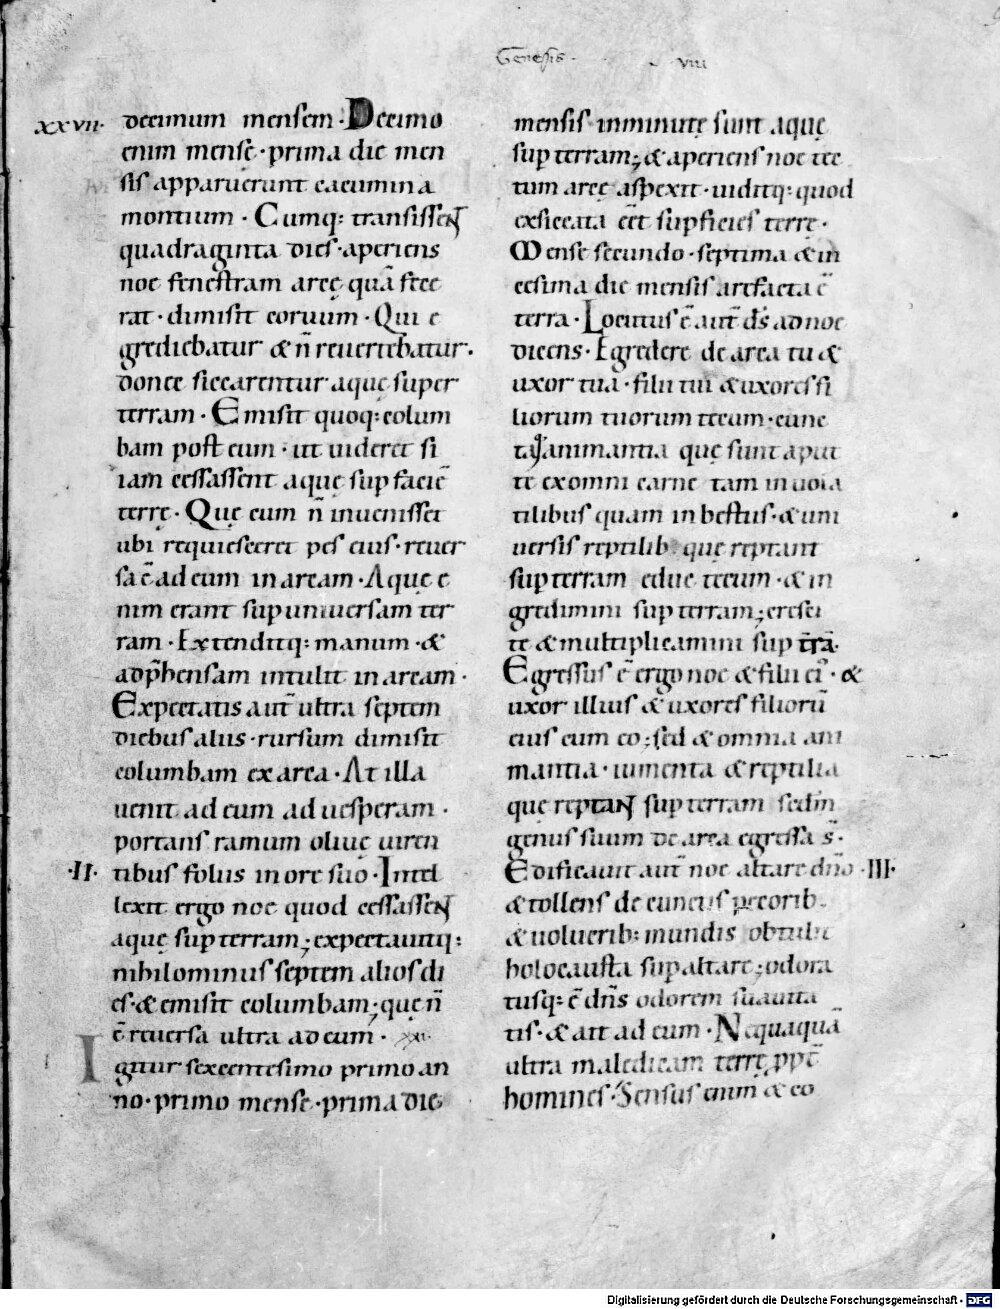 Genesis · VIII
xxvii· decimum mensem · Decimo
enim mense · prima die men
sis apparuerunt cacumina
montium · Cumq: transissent
quadraginta dies · aperiens
noe fenestram arcę quā fece
rat · dimisit coruum · Qui e
grediebatur & n̄ reuertebatur ·
donec siccarentur aquę super
terram · Emisit quoq: colum
bam post eum · ut uideret si
iam cessassent aquę sup faciē
terrę · Quę cum n̄ inuenisset
ubi requiesceret pes eius · reuer
sa ē ad eum in arcam · Aquę e
nim erant sup uniuersam ter
ram · Extenditq: manum · &
adp̄hensam intulit in arcam ·
Expectatis aut̄ ultra septem
diebus aliis · rursum dimisit
columbam ex arca · At illa
uenit ad eum ad uesperam ·
portans ramum oliuę uiren
·II· tibus foliis in ore suo · Intel
lexit ergo noe quod cessassent
aquę sup terram; expectauitq:
nihilominus septem alios di
es · & emisit columbam; quę n̄
ē reuersa ultra ad eum ·
Igitur sexcentesimo primo an
no · primo mense · prima die
mensis inminutę sunt aquę
sup terram; & aperiens noe tec
tum arcę aspexit · uiditq: quod
exsiccata eēt supficies terrę ·
Mense secundo · septima & in
cesima die mensis arefacta ē
terra · Locutus ē aut̄ d̄s ad noe
dicens · Egredere de arca tu &
uxor tua · filii tui & uxores fi
liorum tuorum tecum · cunc
ta animantia quę sunt aput
te ex omni carne tam in uola
tilibus quam in bestiis · & uni
uersis reptilib: quę reptant
sup terram educ tecum · & in
gredimini sup terram; cresci
te & multiplicamini sup t̄rā ·
Egressus ē ergo noe & filii ei' · &
uxor illius & uxores filiorū
eius cum eo; sed & omnia ani
mantia · iumenta & reptilia
quę reptant sup terram sedm
genus suum de arca egressa s̄ ·
Edificauit aut̄ noe altare dn̄o · III·
& tollens de cunctis pecorib:
& uolucrib: mundis obtulit
holocausta sup altare; odora
tusq: ē dn̄s odorem suauita
tis · & ait ad eum · Nequaquā
ultra maledicam terrę ppt̄
homines · Sensus enim & co
Digitalisierung gefördert durch die Deutsche Forschungsgemeinschaft - DFG